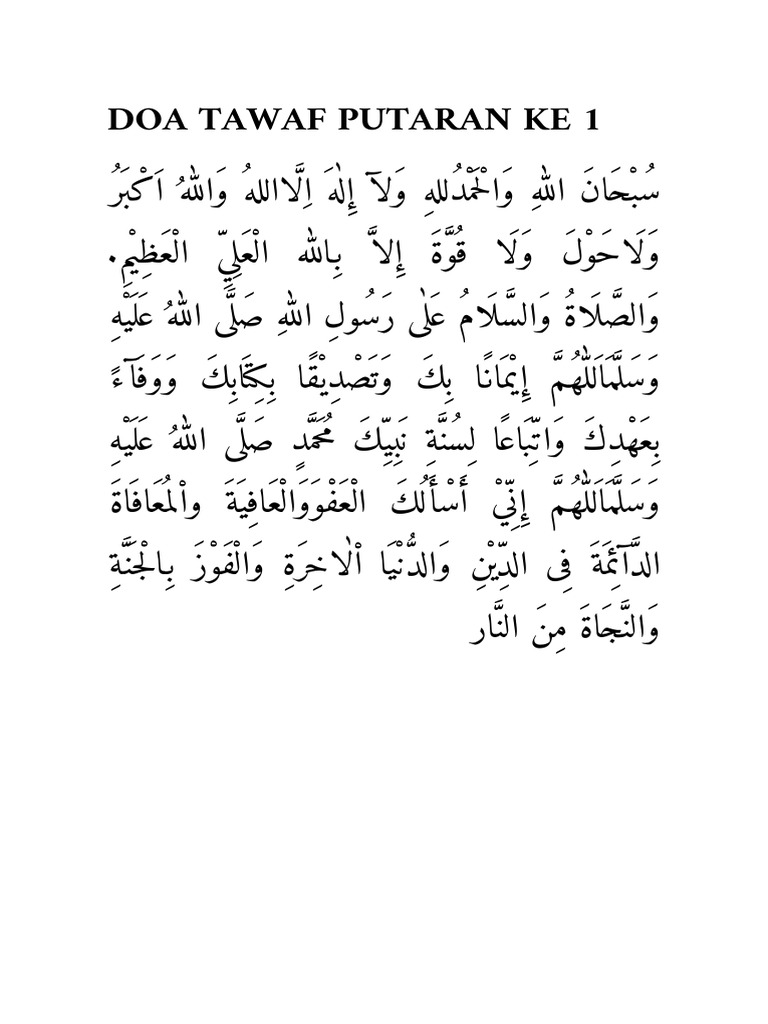 DOA TAWAF PUTARAN KE 1
سُبْحَانَ اللهِ وَالْحَمْدُللهِ وَلآ إِلٰهَ اِلَّااللهُ وَاللهُ اَكْبَرُ
وَلَاحَوْلَ وَلَا قُوَّةَ إِلاَّ بِالله الْعَلِيِّ الْعَظِيْمِ.
وَالصَّلَاةُ وَالسَّلَامُ عَلٰى رَسُولِ اللهِ صَلَّى اللهُ عَلَيْهِ
وَسَلَّمَاَللّٰهُمَّ إِيْمَانًا بِكَ وَتَصْدِيْقًا بِكِتَابِكَ وَوَفَآءً
بِعَهْدِكَ وَاتِّبَاعًا لِسُنَّةِ نَبِيِّكَ مُحَمَّدٍ صَلَّى اللهُ عَلَيْهِ
وَسَلَّمَاَللّٰهُمَّ إِنِّيْ أَسْأَلُكَ الْعَفْوَوَالْعَافِيَةَ واْلمُعَافَاةَ
الدَّآئِمَةَ فِى الدِّيْنِ وَالدُّنْيَا اْلاٰخِرَةِ وَالْفَوْزَ بِالْجَنَّةِ
وَالنَّجَاةَ مِنَ النَّار